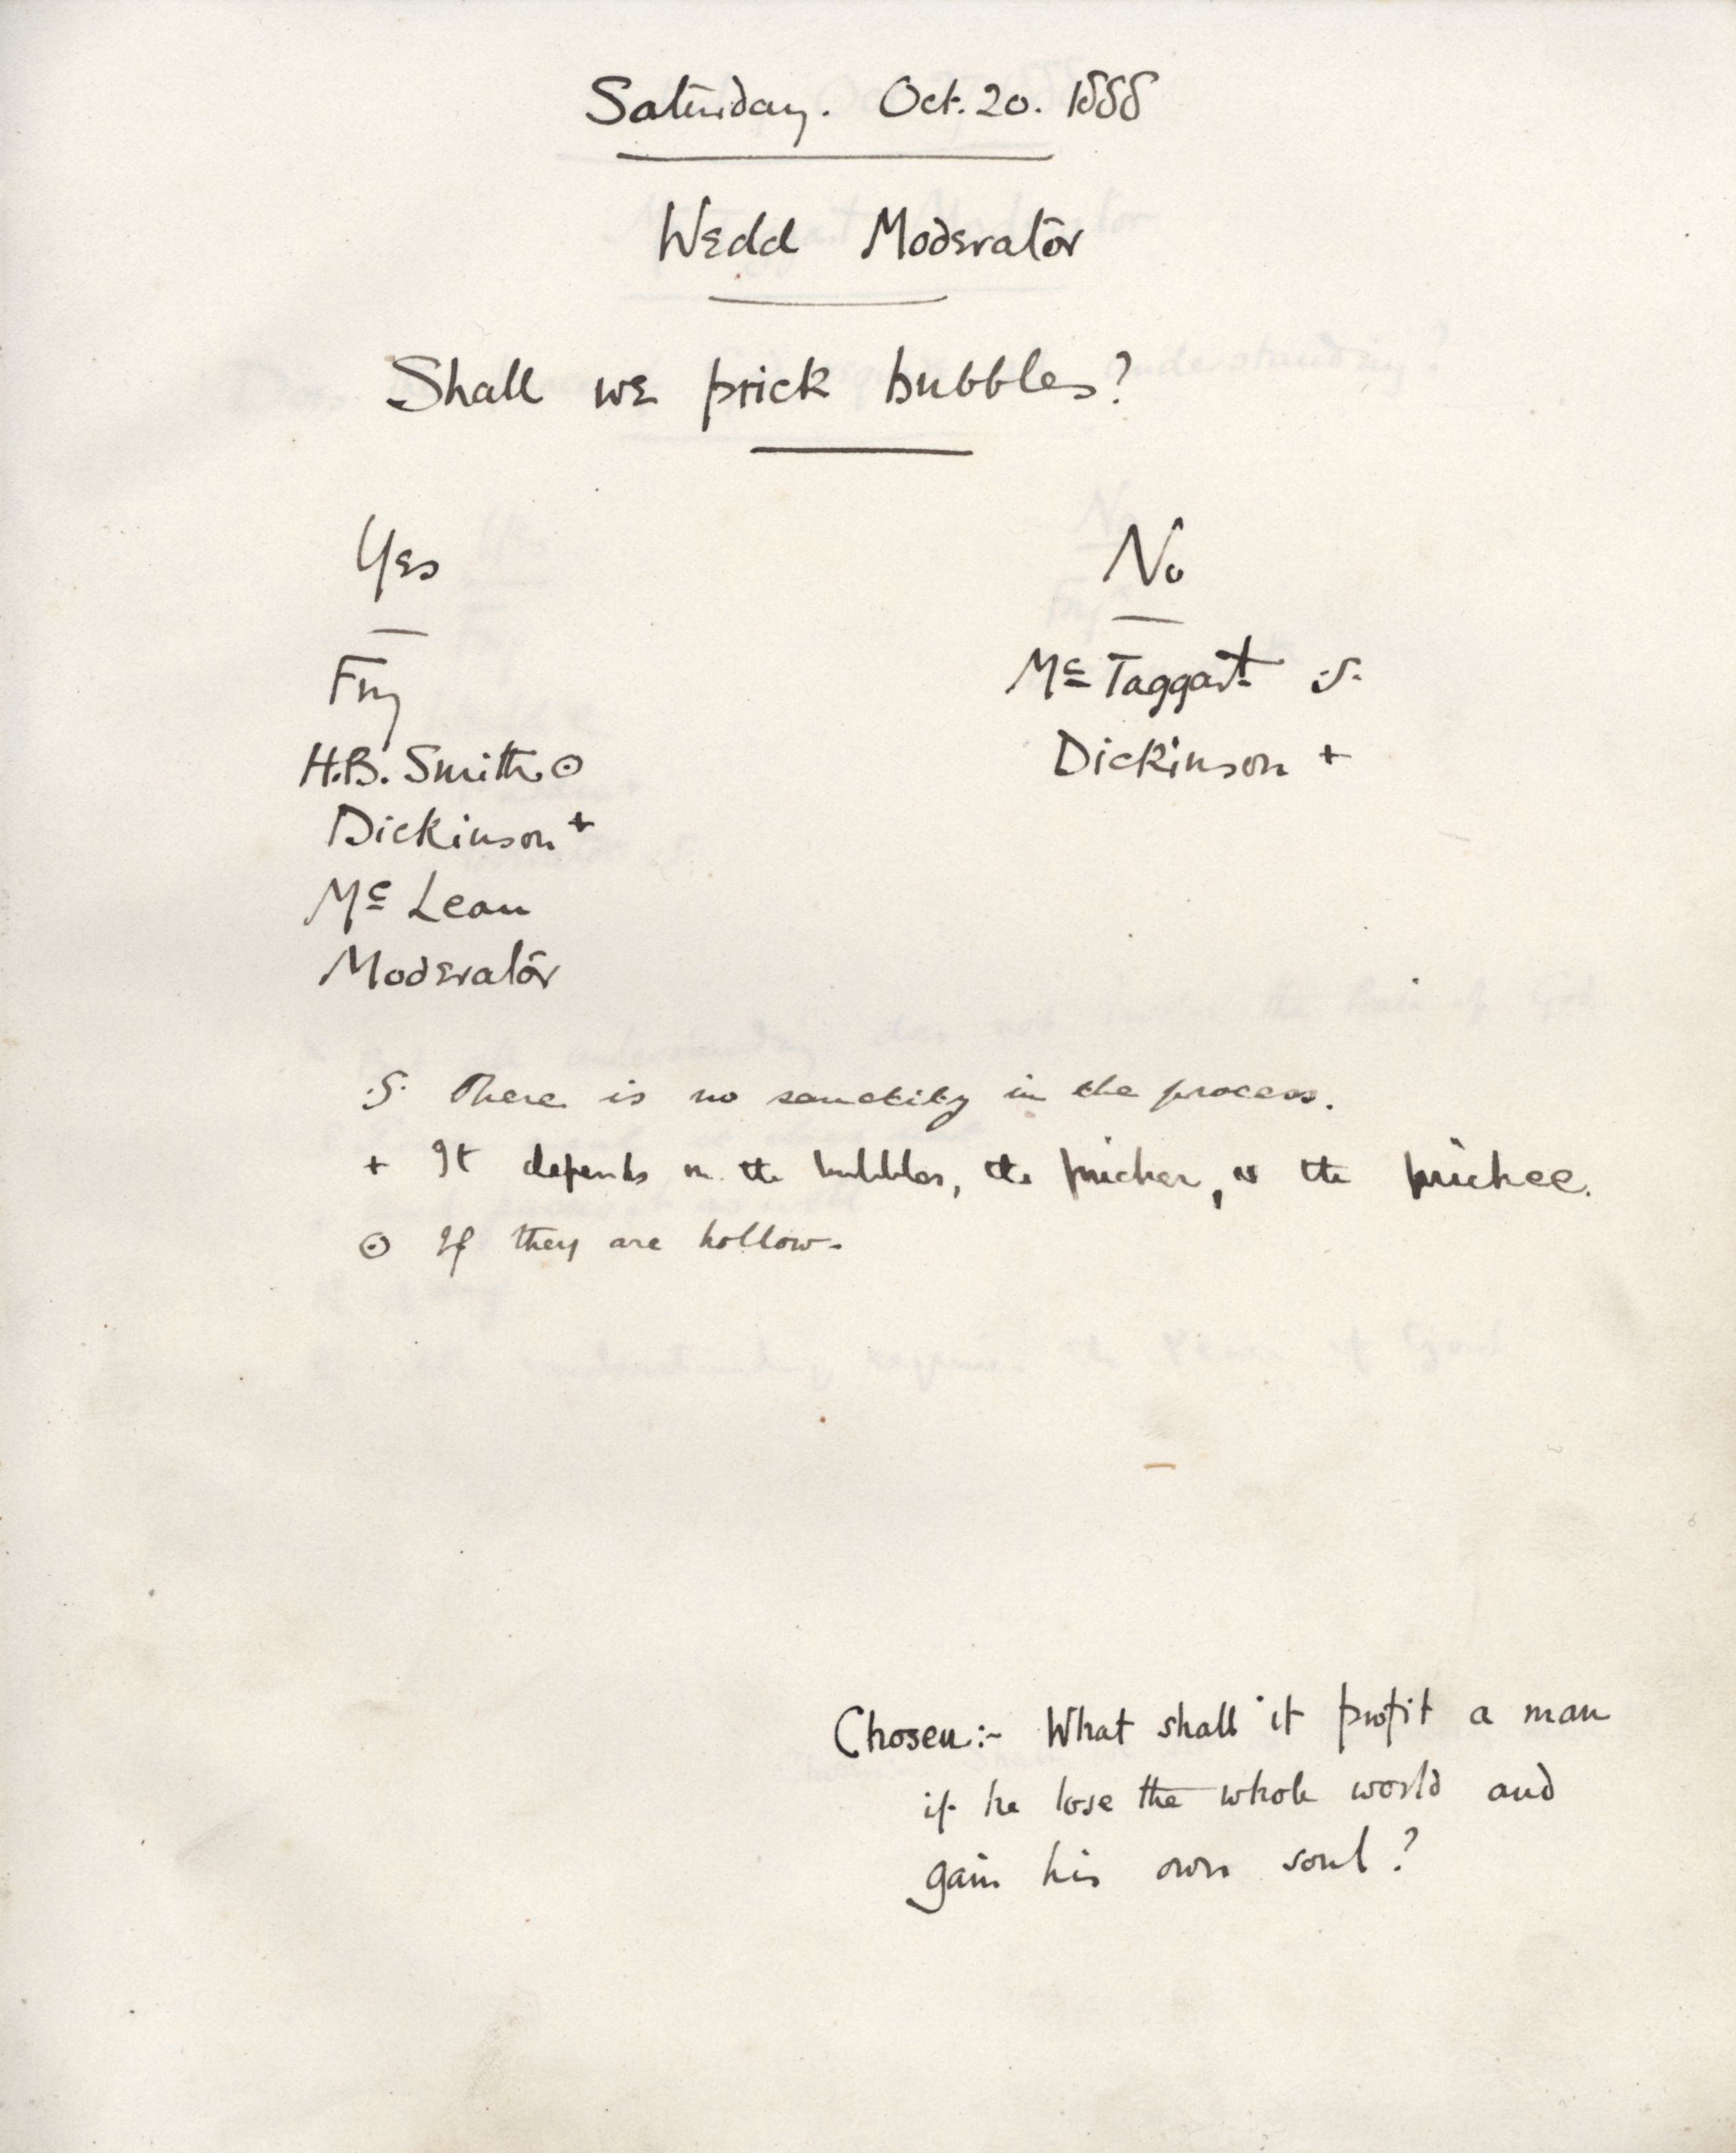 Saturday. Oct. 20. 1888
Wedd Moderator
Shall we prick bubbles?
Yes
No
Fry
Mc Taggart .S.
H.B. Smith ⊙
Dickinson +
Dickinson +
Mc Lean
Moderator
.S. There is no sanctity in the process.
+ It depends on the bubbles, the pricker, & the prickee.
⊙ If they are hollow.
Chosen:- What shall it profit a man
if he lose the whole world and
gain his own soul?